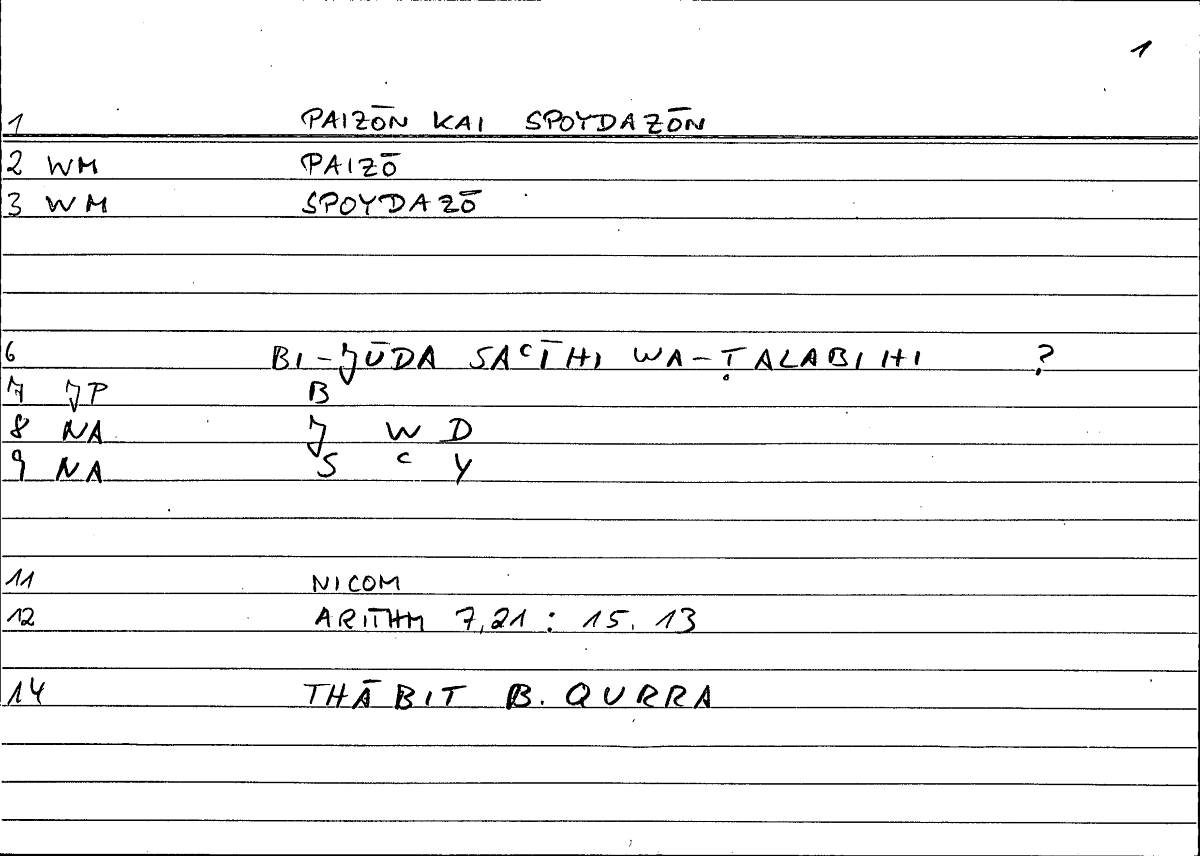 1
1 PAIZŌN KAI SPOYDAZŌN
2 WM PAIZŌ
3 WM SPOYDAZŌ
6 BI-JŪDA SAʿĪHI WA-ṬALABIHI ?
7 JP B
8 NA J W D
9 NA S ʿ Y
11 NICOM
12 ARITHM 7,21 : 15. 13
14 THĀBIT B. QURRA